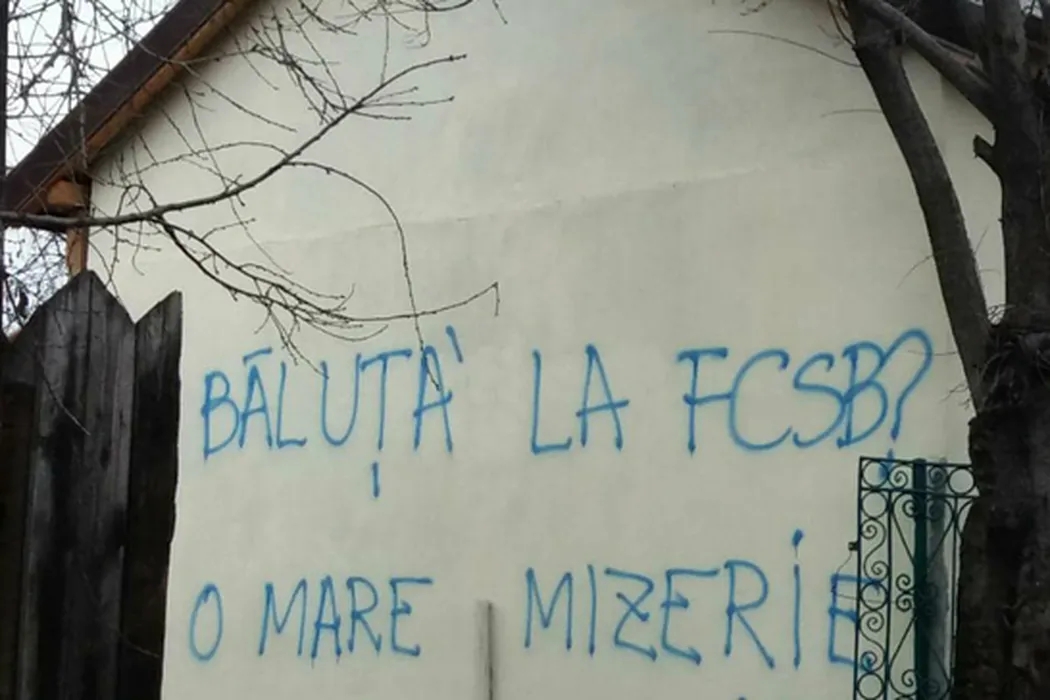 BĂLUȚĂ LA FCSB?
O MARE MIZERIE